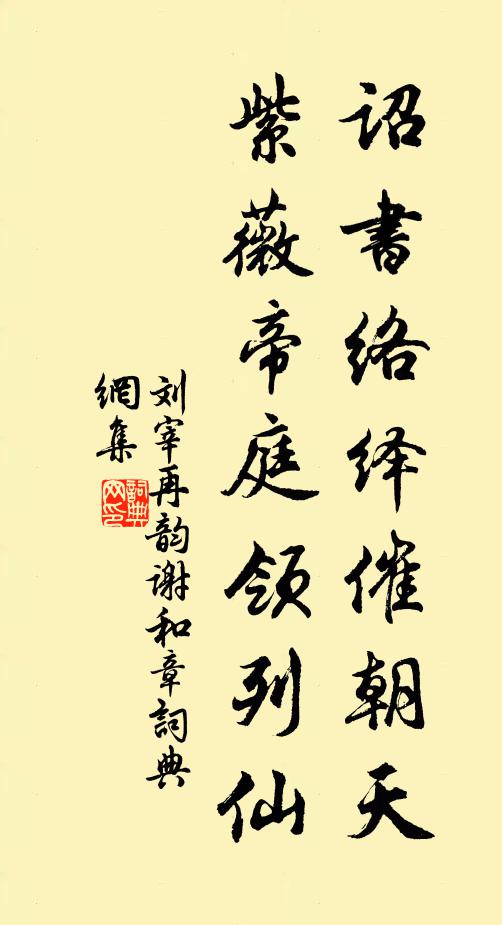 诏書络绎催朝天
紫薇帝庭领列仙
刘宰再韵谢和章詞典
網集
詞典
网印